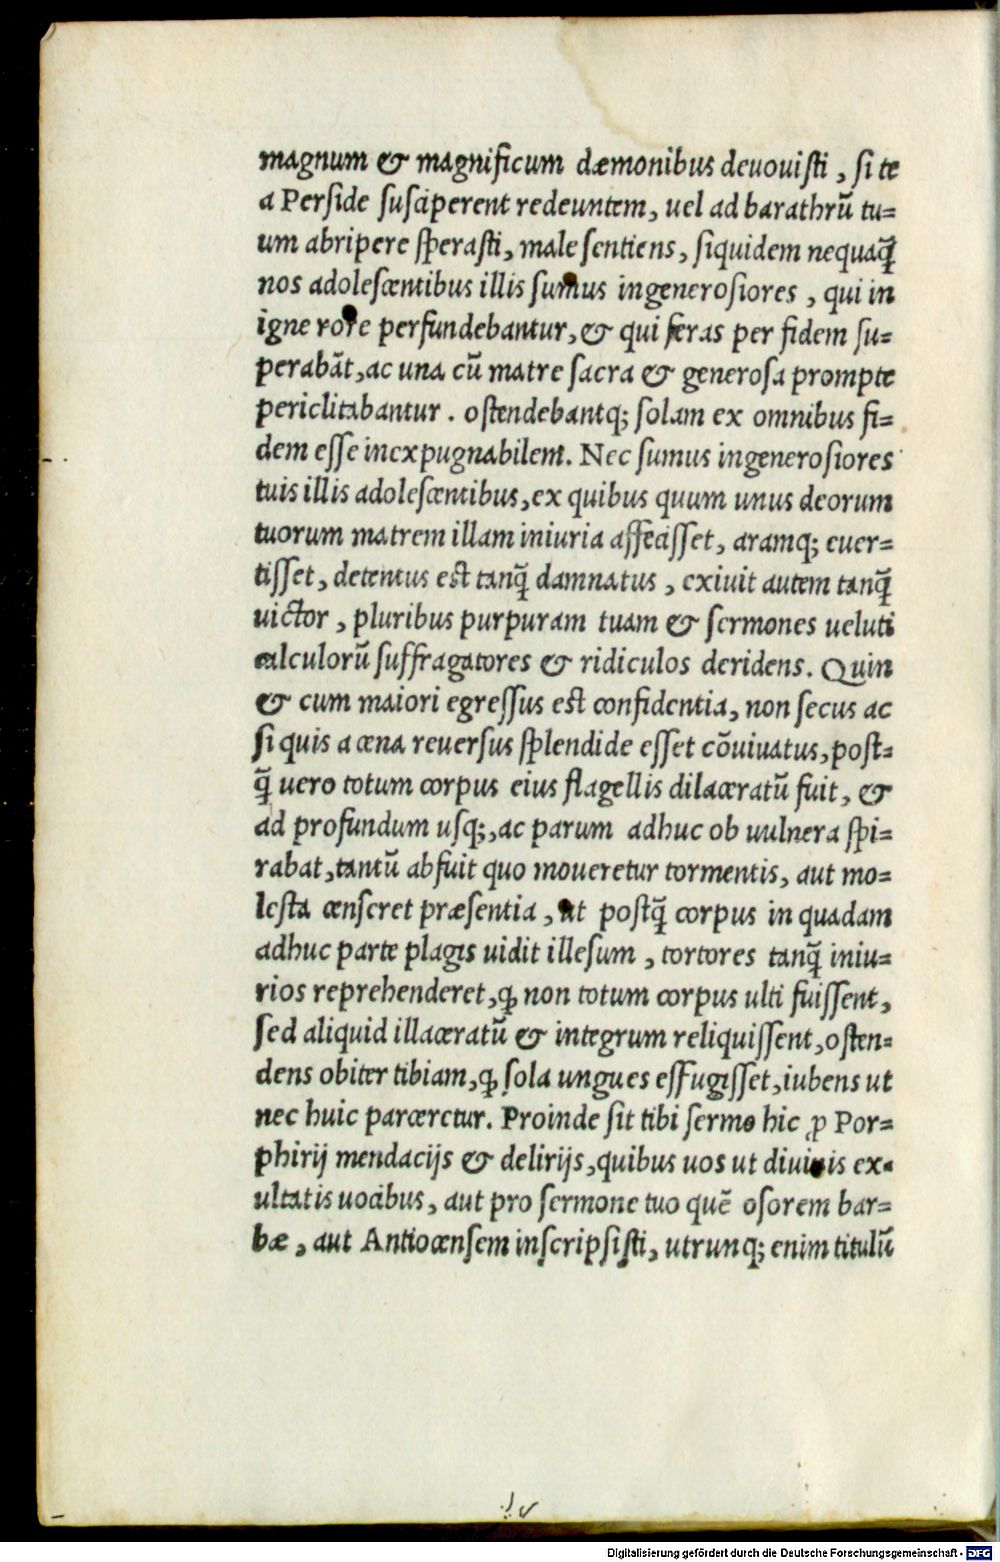 magnum & magnificum dæmonibus deuouisti, si te
a Perside susciperent redeuntem, uel ad barathrū tu=
um abripere sperasti, male sentiens, siquidem nequaq̄
nos adolescentibus illis sumus ingenerosiores, qui in
igne rore perfundebantur, & qui feras per fidem su=
perabāt, ac una cū matre sacra & generosa prompte
periclitabantur. ostendebantq; solam ex omnibus fi=
dem esse inexpugnabilem. Nec sumus ingenerosiores
tuis illis adolescentibus, ex quibus quum unus deorum
tuorum matrem illam iniuria affecisset, aramq; euer=
tisset, detentus est tanq̄ damnatus, exiuit autem tanq̄
uictor, pluribus purpuram tuam & sermones ueluti
calculorū suffragatores & ridiculos deridens. Quin
& cum maiori egressus est confidentia, non secus ac
si quis a cœna reuersus splendide esset cōuiuatus, post=
q̄ uero totum corpus eius flagellis dilaceratū fuit, &
ad profundum usq;, ac parum adhuc ob uulnera spi=
rabat, tantū abfuit quo moueretur tormentis, aut mo=
lesta censeret præsentia, ut postq̄ corpus in quadam
adhuc parte plagis uidit illesum, tortores tanq̄ iniu=
rios reprehenderet, ꝙ non totum corpus ulti fuissent,
sed aliquid illaceratū & integrum reliquissent, osten=
dens obiter tibiam, ꝙ sola ungues effugisset, iubens ut
nec huic parceretur. Proinde sit tibi sermo hic ꝓ Por=
phirij mendacijs & delirijs, quibus uos ut diuinis ex=
ultatis uocibus, aut pro sermone tuo quē osorem bar=
bæ, aut Antiocensem inscripsisti, utrunq; enim titulū
Digitalisierung gefördert durch die Deutsche Forschungsgemeinschaft - DFG